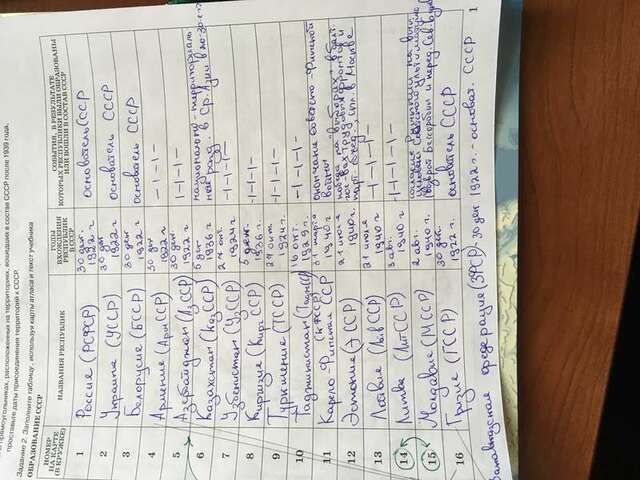 в прямоугольниках, расположенных на территориях, вошедших в состав СССР после 1939 года,
проставьте даты присоединения территорий к СССР.
Задание 2. Заполните таблицу, используя карты атласа и текст учебника
ОБРАЗОВАНИЕ СССР
НОМЕР НА КАРТЕ (В КРУЖКЕ)
НАЗВАНИЯ РЕСПУБЛИК
ГОДЫ ВХОЖДЕНИЯ РЕСПУБЛИК В СССР
СОБЫТИЯ, В РЕЗУЛЬТАТЕ КОТОРЫХ РЕСПУБЛИКИ БЫЛИ ОБРАЗОВАНЫ ИЛИ ВОШЛИ В СОСТАВ СССР
1 Россия (РСФСР) 30 дек 1922 г. основатель СССР
2 Украина (УССР) 30 дек 1922 основатель СССР
3 Белорусия (БССР) 30 дек 1922 г основатель СССР
4 Армения (Арм ССР) 30 дек 1922 г -ı-ı-ı-
5 Азербайджан (Аз ССР) 30 дек. 1922 г -ı-ı-ı-
6 Казахстан (Каз ССР) 5 дек 1936 г национально-территориаль ное разд. в Ср. Азии в 20-30-е г
7 Узбекистан (Уз ССР) 27 окт. 1924 г -ı-ı-ı-
8 Киргизия (Кирг. ССР) 5 дек. 1936 г. -ı-ı-ı-
9 Туркмения (ТССР) 27 окт 1924 г. -ı-ı-ı-
10 Таджикистан 16 окт. 1929 г. -ı-ı-ı-
11 Карело-Финская ССР (КФССР) 31 марта 1940 г окончание советско-Финской войны
12 Эстония (Э ССР) 21 июля 1940 г. победа на выборах в Москве
13 Латвия (Лав ССР) 21 июля 1940 г -ı-ı-ı-
14 Литва (ЛитССР) 3 авг. 1940 г -ı-ı-ı-
15 Молдавия (МССР) 2 авг. 1940 г. Сев. Буков
16 Грузия (ГССР) 30 дек 1922 г. основатель СССР
Закавказская федерация (ЗФСР) - 30 дек 1922 г. - основат. СССР
1